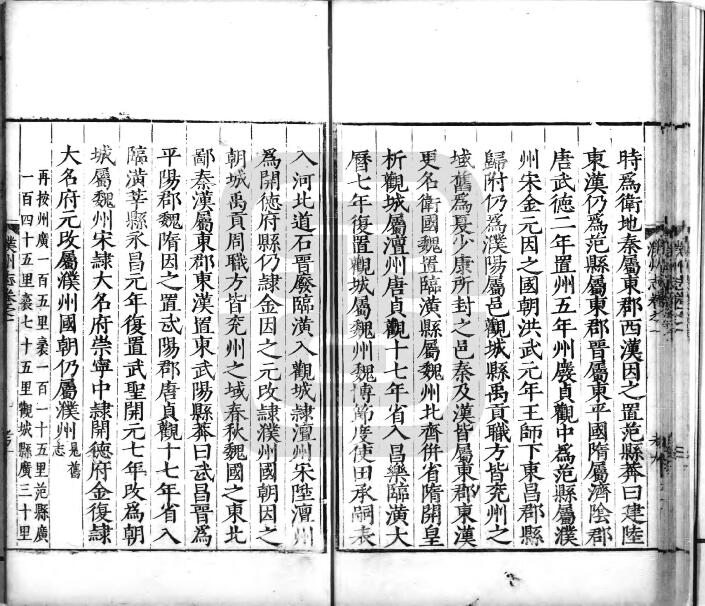 時爲衛地秦屬東郡西漢因之置范縣莽曰建陸
東漢仍爲范縣屬東郡晉屬東平國隋屬濟陰郡
唐武德二年置州五年州廢貞觀中爲范縣屬濮
州宋金元因之國朝洪武元年王師下東昌郡縣
歸附仍爲濮陽屬邑觀城縣禹貢職方皆兗州之
域舊爲夏少康所封之邑秦及漢皆屬東郡東漢
更名衛國魏置臨潢縣屬魏州北齊併省隋開皇
析觀城屬澶州唐貞觀十七年省入昌樂臨潢大
曆七年復置觀城屬魏州魏博節度使田承嗣表
入河北道石晉廢臨潢入觀城隸澶州宋陞澶州
爲開德府縣仍隸金因之元改隸濮州國朝因之
朝城禹貢周職方皆兗州之域春秋魏國之東北
鄙秦漢屬東郡東漢置東武陽縣莽曰武昌晉爲
平陽郡魏隋因之置武陽郡唐貞觀十七年省入
臨潢莘縣永昌元年復置武聖開元七年改爲朝
城屬魏州宋隸大名府崇寧中隸開德府金復隸
大名府元改屬濮州國朝仍屬濮州 見舊志
再按州廣一百五里袤一百一十五里范縣廣
一百四十五里袤七十五里觀城縣廣三十里
濮州志卷之一